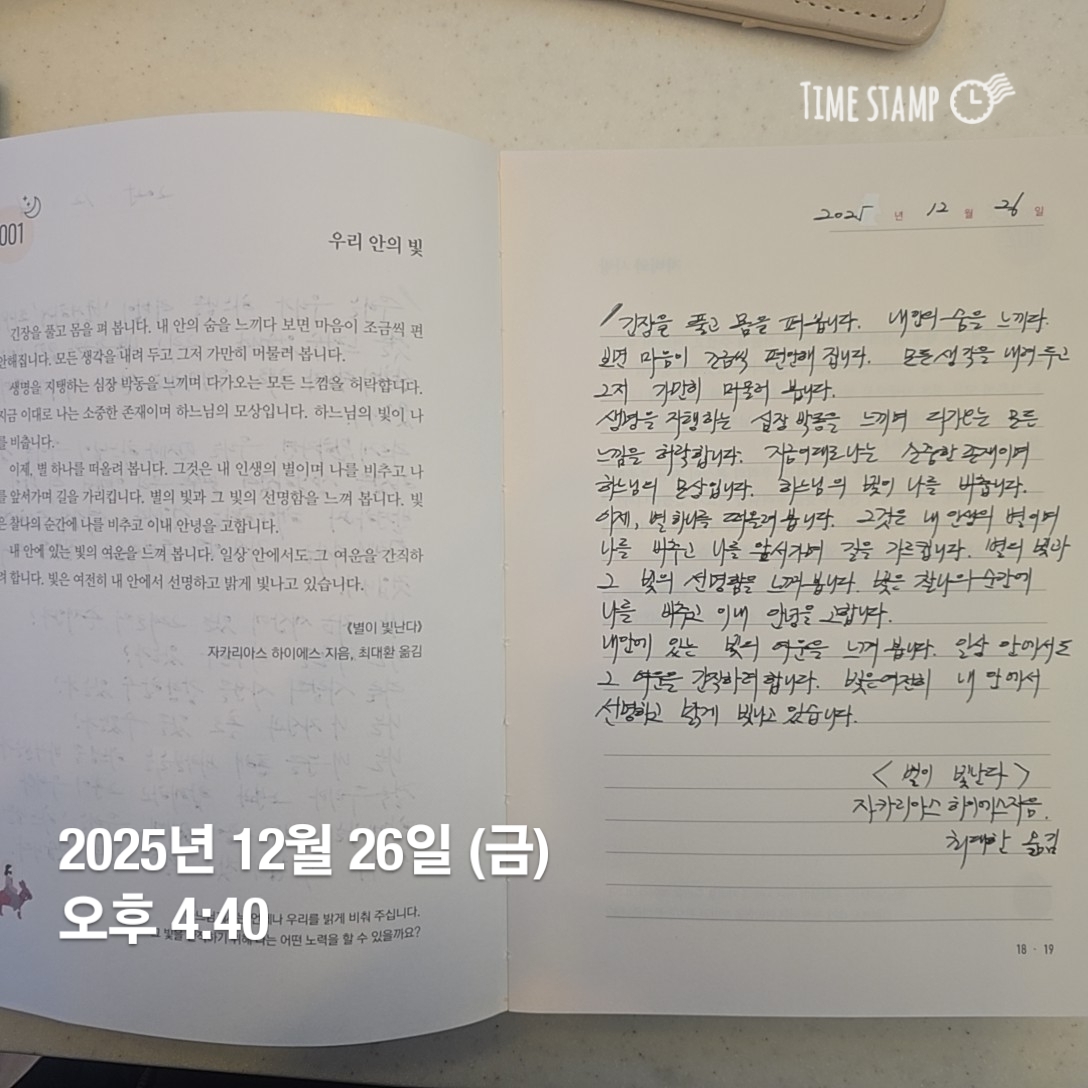 TIME STAMP
001
우리 안의 빛
긴장을 풀고 몸을 펴 봅니다. 내 안의 숨을 느끼다 보면 마음이 조금씩 편
안해집니다. 모든 생각을 내려 두고 그저 가만히 머물러 봅니다.
생명을 지탱하는 심장 박동을 느끼며 다가오는 모든 느낌을 허락합니다.
지금 이대로 나는 소중한 존재이며 하느님의 모상입니다. 하느님의 빛이 나
를 비춥니다.
이제, 별 하나를 떠올려 봅니다. 그것은 내 인생의 별이며 나를 비추고 나
를 앞서가며 길을 가리킵니다. 별의 빛과 그 빛의 선명함을 느껴 봅니다. 빛
은 찰나의 순간에 나를 비추고 이내 안녕을 고합니다.
내 안에 있는 빛의 여운을 느껴 봅니다. 일상 안에서도 그 여운을 간직하
려 합니다. 빛은 여전히 내 안에서 선명하고 밝게 빛나고 있습니다.
《별이 빛난다》
자카리아스 하이에스 지음, 최대환 옮김
우리를 밝게 비춰 주십니다.
어떤 노력을 할 수 있을까요?
2025년 12월 26일 (금)
오후 4:40
2025 년 12 월 26 일
긴장을 풀고 몸을 펴 봅니다. 내 안의 숨을 느끼다
보면 마음이 조금씩 편안해 집니다. 모든 생각을 내려 두고
그저 가만히 머물러 봅니다.
생명을 지탱하는 심장 박동을 느끼며 다가오는 모든
느낌을 허락합니다. 지금 이대로 나는 소중한 존재이며
하느님의 모상입니다. 하느님의 빛이 나를 비춥니다.
이제, 별 하나를 떠올려 봅니다. 그것은 내 인생의 별이며
나를 비추고 나를 앞서가며 길을 가르킵니다. 별의 빛과
그 빛의 선명함을 느껴 봅니다. 빛은 찰나의 순간에
나를 비추고 이내 안녕을 고합니다.
내안에 있는 빛의 여운을 느껴 봅니다. 일상 안에서도
그 여운을 간직하려 합니다. 빛은 여전히 내 안에서
선명하고 밝게 빛나고 있습니다.
< 별이 빛난다 >
자카리아스 하이에스 지음.
최대환 옮김
18 · 19